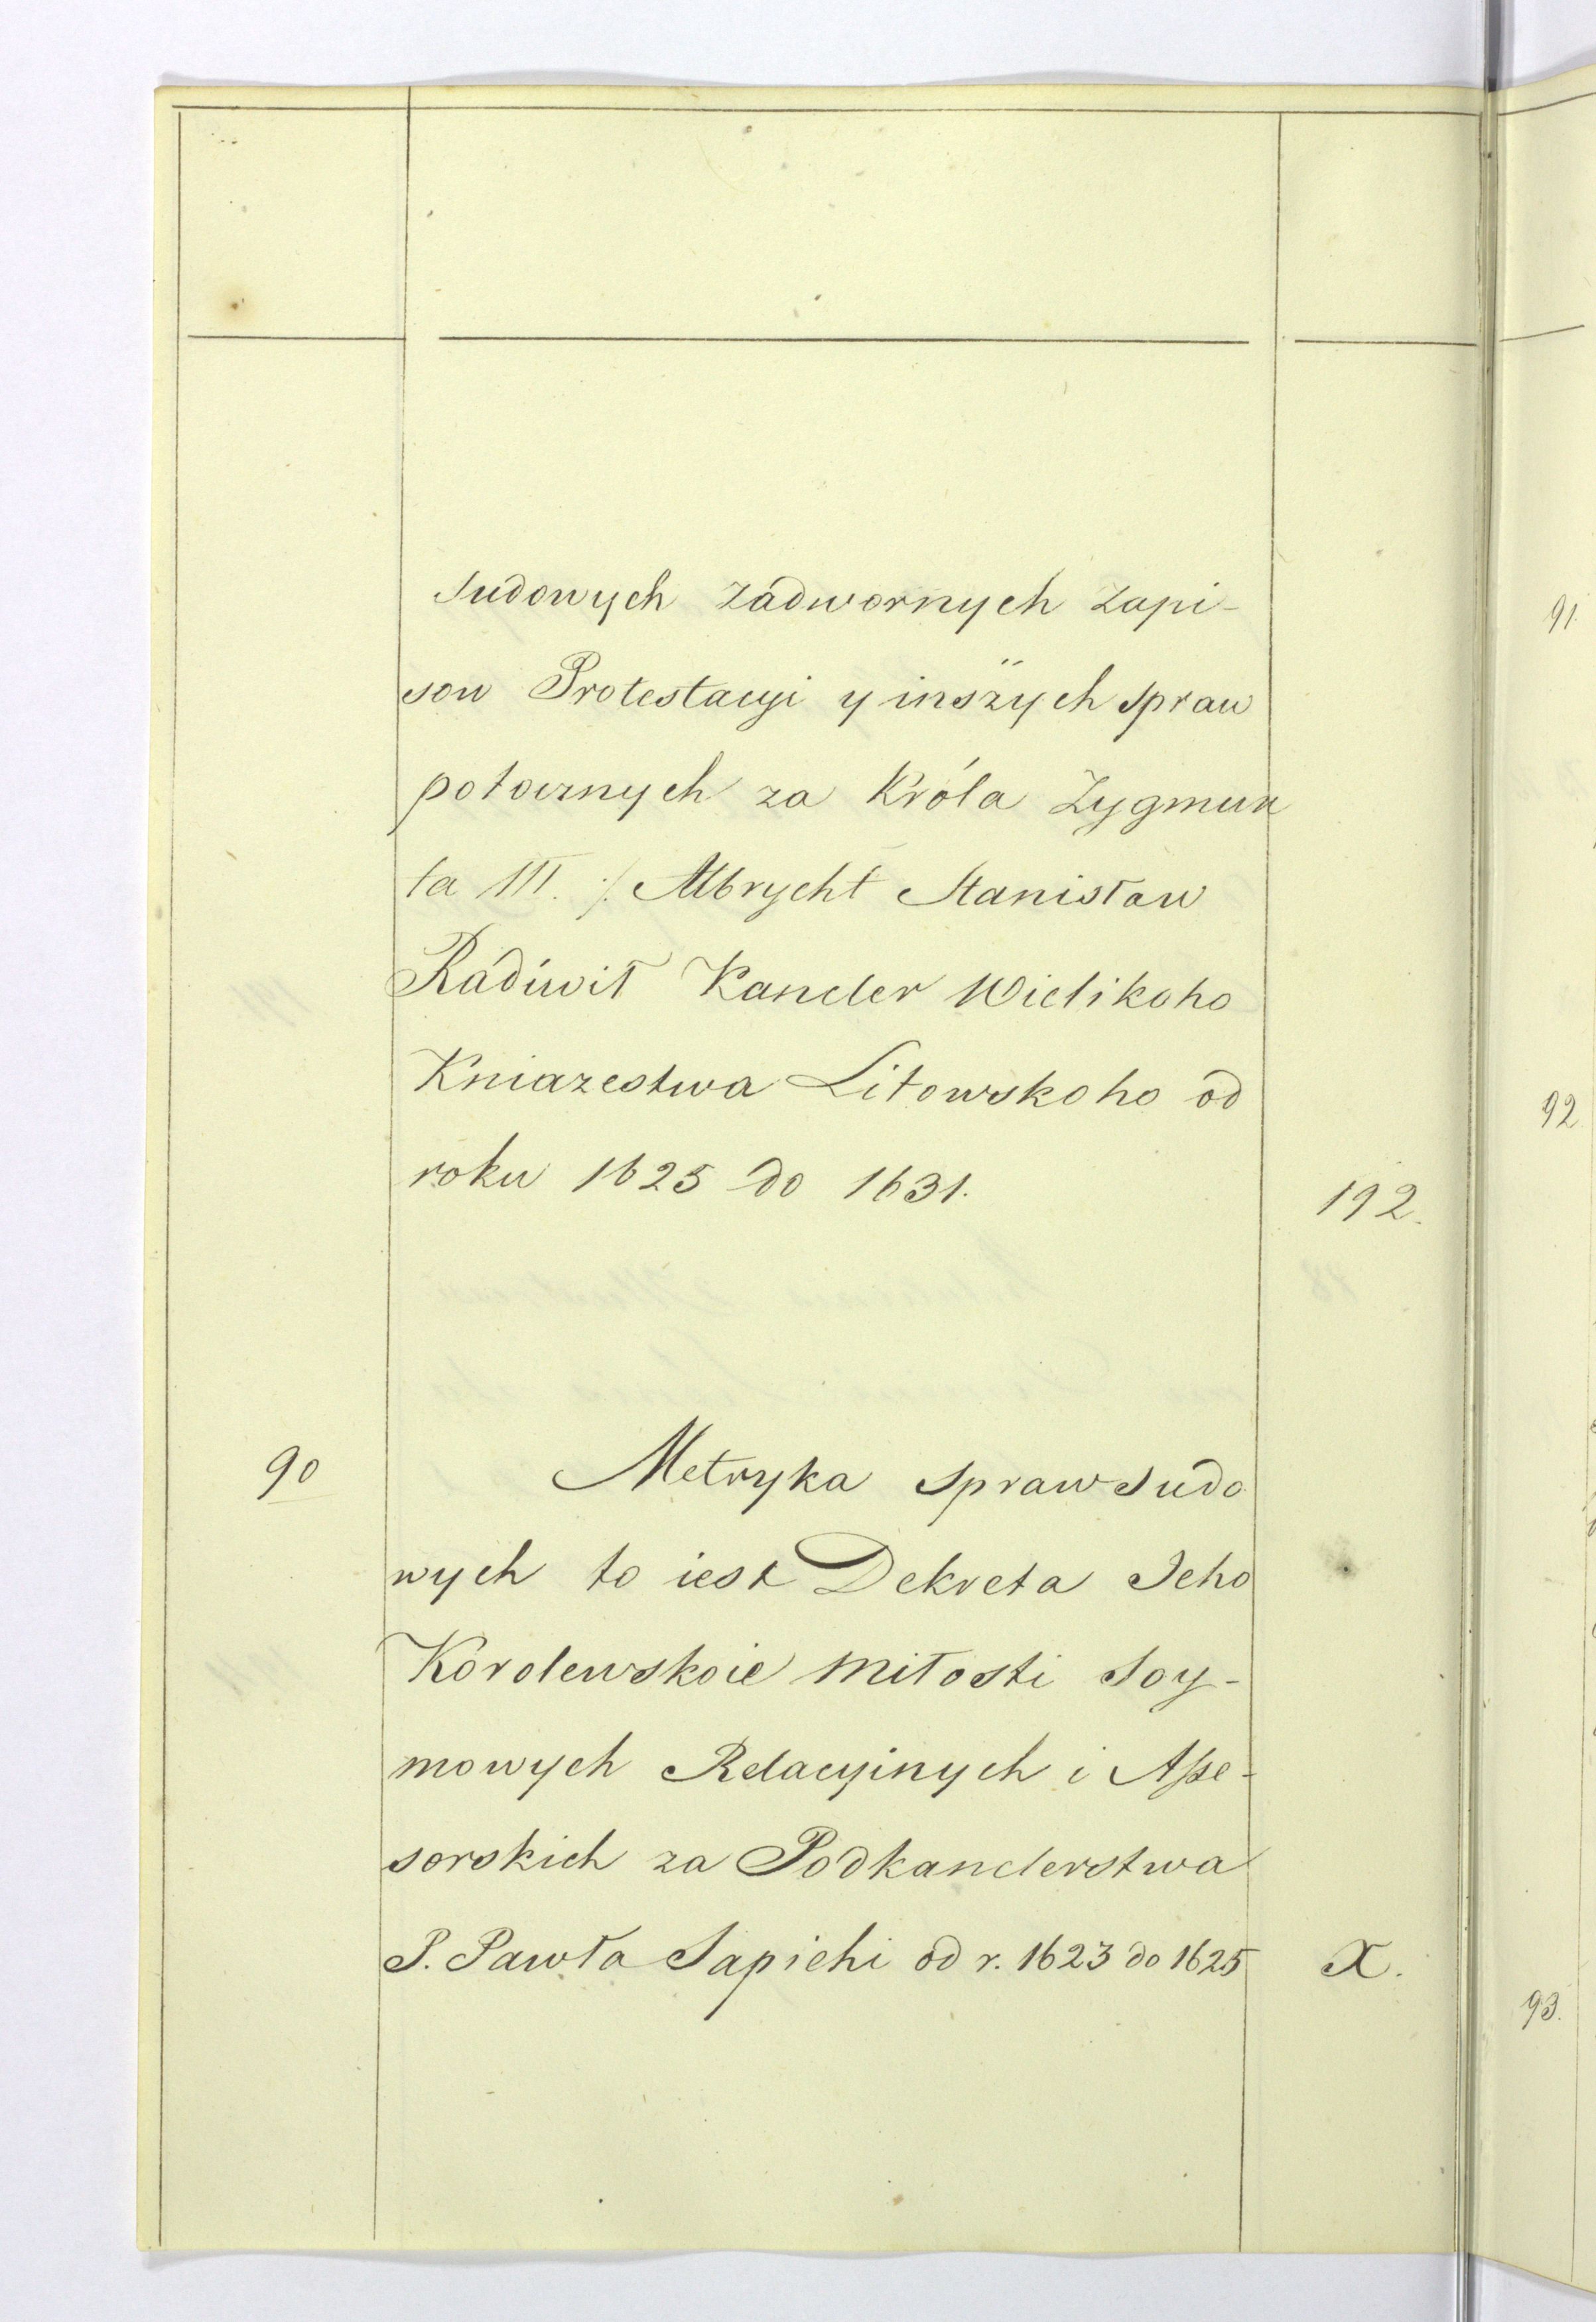 sudowych zadwornych zapi-
sow Protestacyi y inszych spraw
potocznych za Króla Zygmun
ta III. /: Albrycht Stanisław
Radiwił Kancler Wielikoho
Kniazestwa Litowskoho od
roku 1625 do 1631.
192.
90
Metryka spraw sudo
wych to iest Dekreta Jeho
Korolewskoie miłosti soy-
mowych Relacyinych i Asse-
sorskich za Podkanclerstwa
P. Pawła Sapiehi od r. 1623 do 1625
X.
91
92
93.